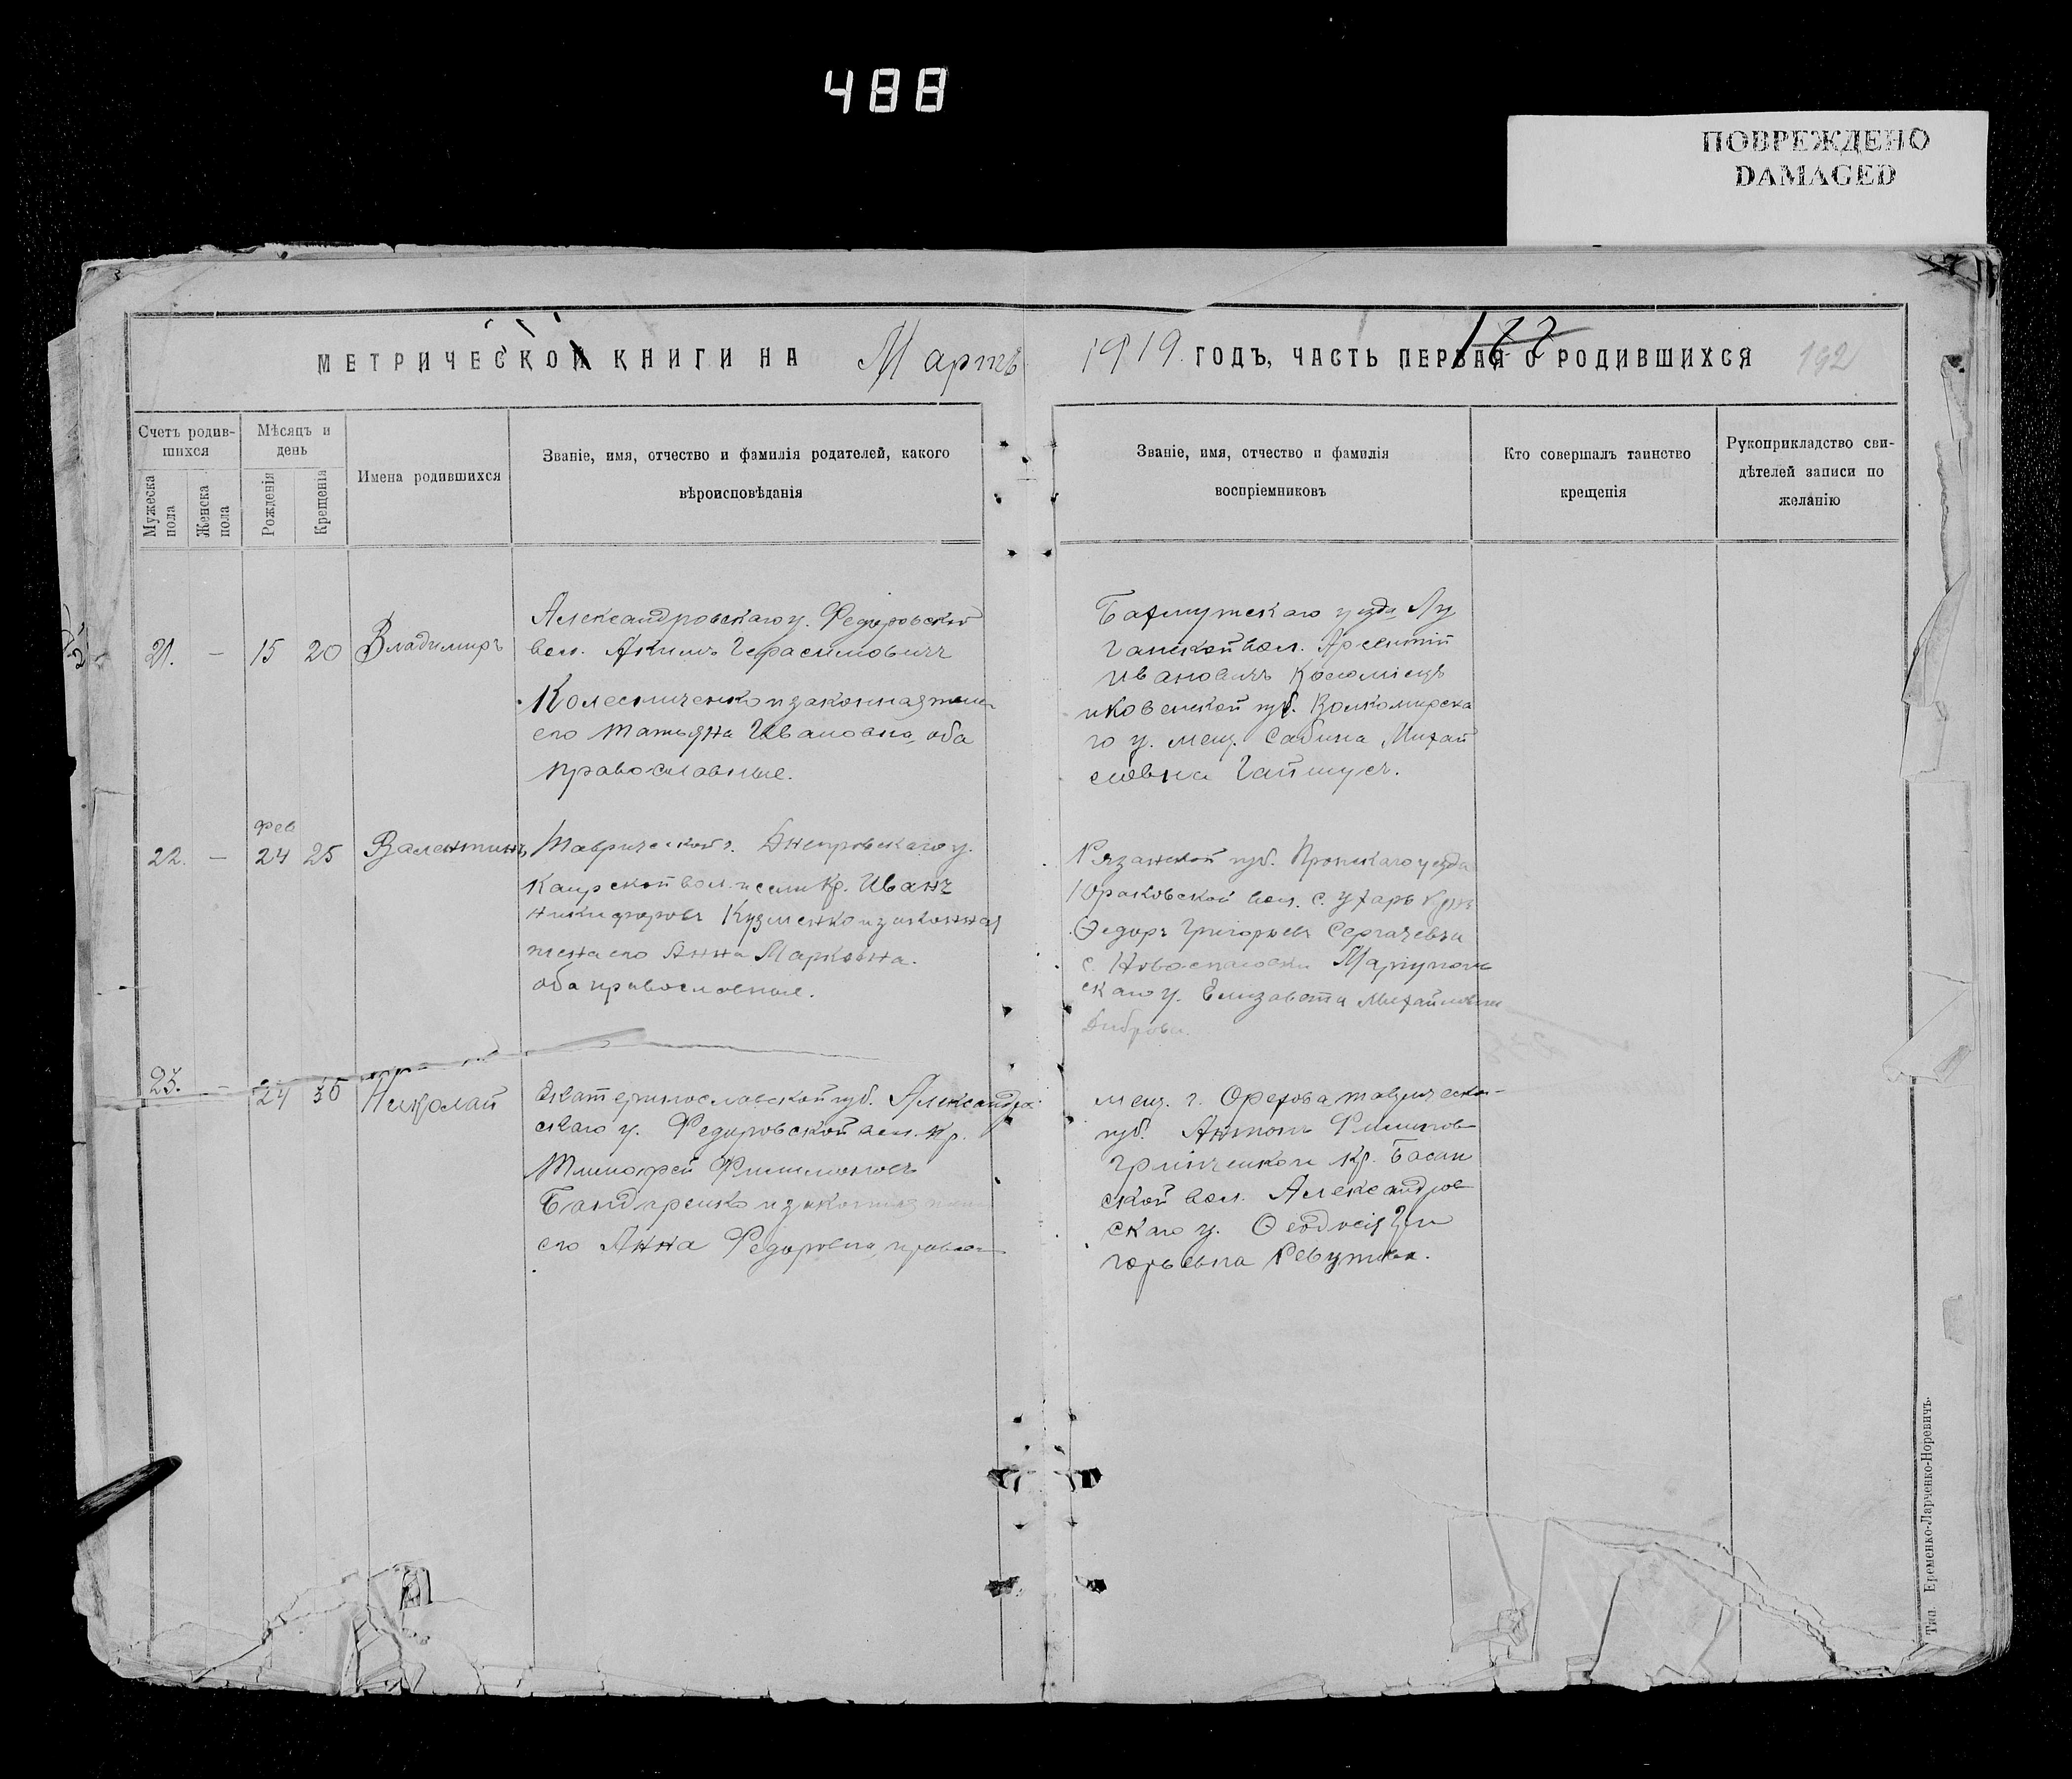 488
ПОВРЕЖДЕНО
DAMAGED
МЕТРИЧЕСКОЙ КНИГИ НА Мартъ 1919. ГОДЪ, ЧАСТЬ ПЕРВАЯ О РОДИВШИХСЯ
192
Счетъ родив-
шихся
Мужеска
пола
Женска
пола
Мѣсяцъ и
день
Рожденія
Крещенія
Имена родившихся
Званіе, имя, отчество и фамилія родителей, какого
вѣроисповѣданія
Званіе, имя, отчество и фамилія
воспріемниковъ
Кто совершалъ таинство
крещенія
Рукоприкладство сви-
дѣтелей записи по
желанію
21. – 15 20 Владимиръ
Александровскаго у. Федоровской
вол. Акимъ Герасимовичъ
Колесниченко и законная жена
его Татьяна Ивановна, оба
православные.
Бахмутскаго уезда Лу
ганской вол. Арсентій
Ивановичъ
и Ковенской губ. Волкомирска
го у. мещ. Сабина Михай
ловна
Фев
22. – 24 25 Валентинъ
Таврической г. Днепровскаго у.
Каирской вол. и села Кр. Иванъ
Никифоровъ Кузменко и законная
жена его Анна Марковна.
оба православные.
Рязанской губ. Пронскаго уезда
вол. с.
Федоръ Григорьевъ
с. Новоспасовки Мариуполь
скаго у. Елизавета Михайловна
23. – 24 30 Николай
Екатеринославской губ. Александров
скаго у. Федоровской вол. кр.
Тимофей Филимоновъ
Бандаренко и законная жена
его Анна Федоровна, правосл
мещ. г. Орехова Таврическ-
губ. Антонъ Филипов
кр. Басан
ской вол. Александров
скаго у. Феодосія Гри
горьевна
Тип. Еременко-Ларченко-Норевичъ.